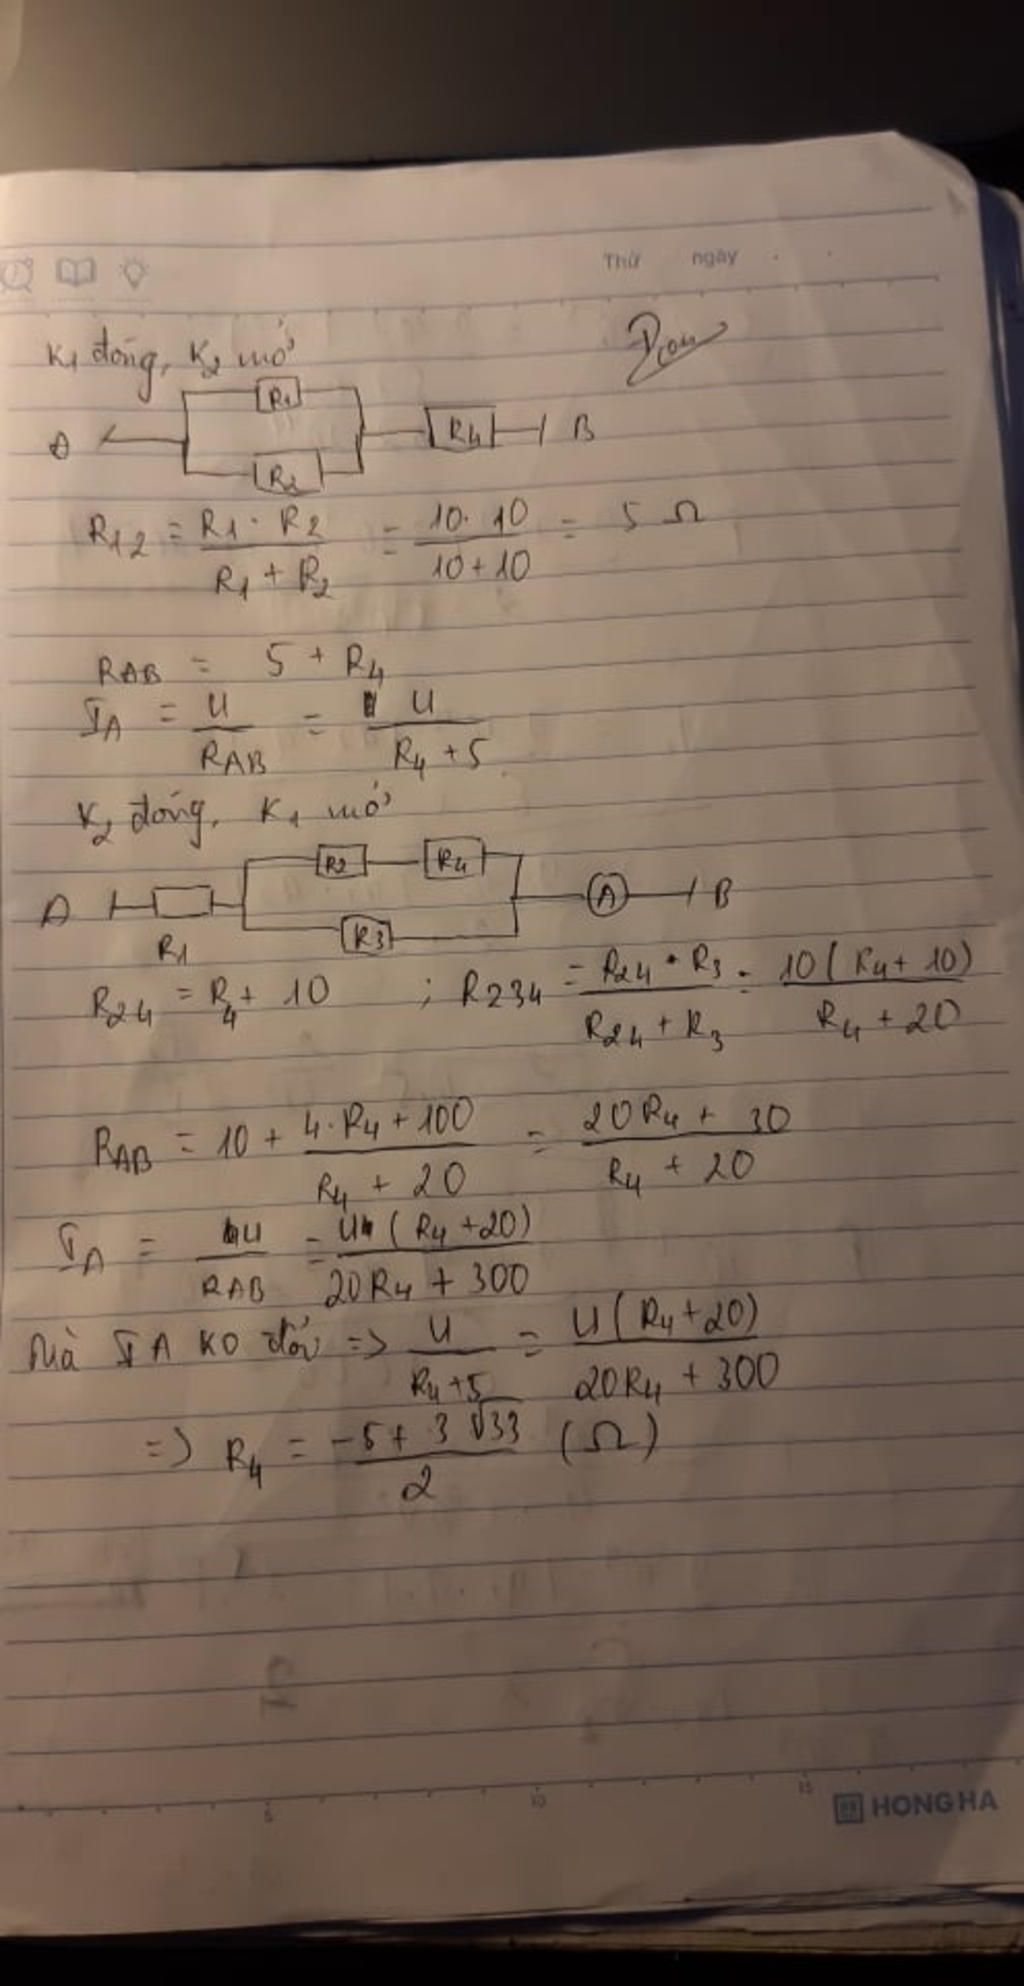 Thứ ngày
K1 đóng, K2 mở
R1
A R4 B
R2
R12 = R1 · R2 / R1 + R2 = 10 · 10 / 10 + 10 = 5 Ω
RAB = 5 + R4
IA = U / RAB = U / R4 + 5
K2 đóng, K1 mở
R2 R4
A A B
R1 R3
R24 = R4 + 10 ; R234 = R24 · R3 / R24 + R3 = 10(R4 + 10) / R4 + 20
RAB = 10 + 4·R4 + 100 / R4 + 20 = 20R4 + 30 / R4 + 20
IA = U / RAB = U (R4 + 20) / 20R4 + 300
Mà IA KO đổi => U / R4 + 5 = U(R4 + 20) / 20R4 + 300
=> R4 = -5 + 3√33 / 2 (Ω)
5 10 15
HONG HA